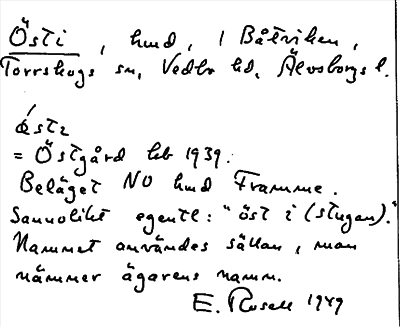 Östi, hmd, i Båtviken,
Torrskogs sn, Vedbo hd, Älvsborgs l.
östɩ
= Östgård hb 1939.
Beläget NO hmd Framme.
Sannolikt egentl: "öst i (stugan)."
Namnet användes sällan, man
nämner ägarens namn.
E. Rosell 1949